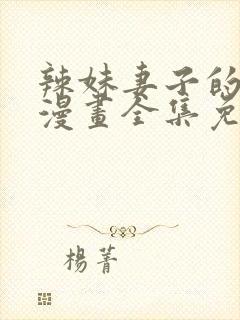 辣妹妻子的
漫畫全集免
楊菁